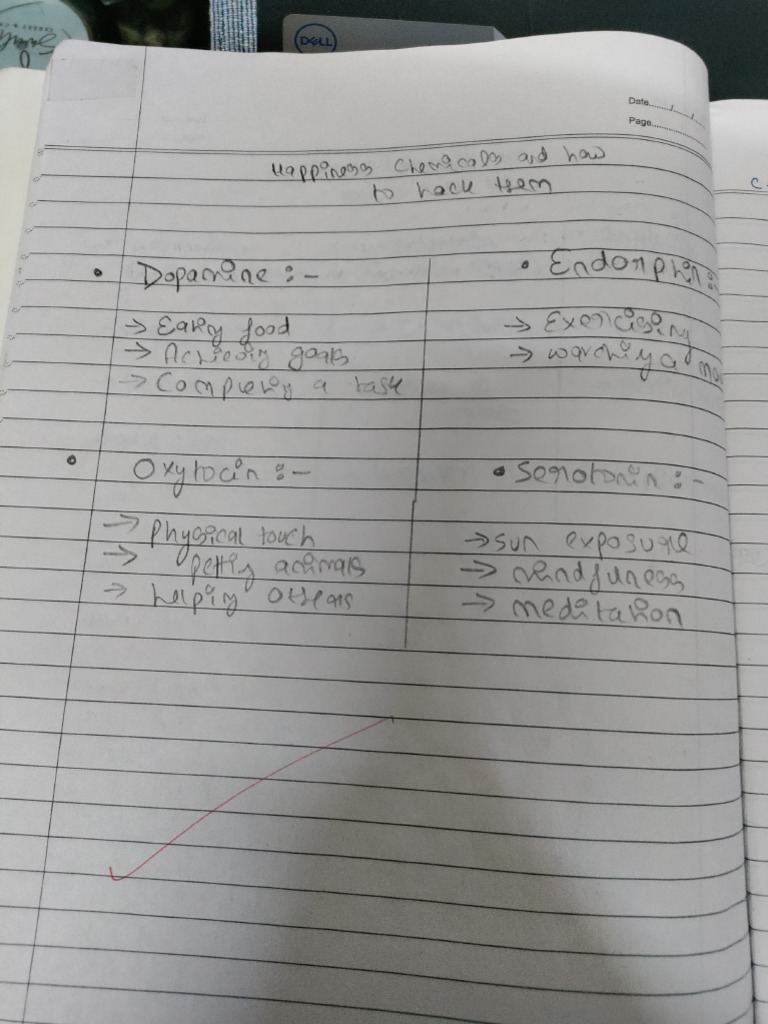 DELL
Date...../..../....
Page............
Happiness Chemicals and how
to hack them
• Dopamine :-
→ Eating food
→ Achieving goals
→ Completing a task
• Endorphin :-
→ Exercising
→ watching a mo
• Oxytocin :-
→ physical touch
→ petting animals
→ helping others
• Serotonin :-
→ sun exposure
→ mindfuness
→ meditation
C